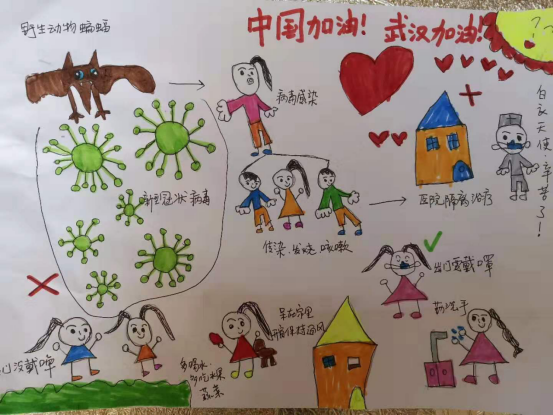 中国加油! 武汉加油!
野生动物 蝙蝠
病毒感染
新型冠状病毒
传染、发烧 咳嗽
医院隔离治疗
白衣天使辛苦了!
出门要戴罩
勤洗手
呆在家里
保持通风
多喝水
多吃水果
蔬菜
门没戴罩